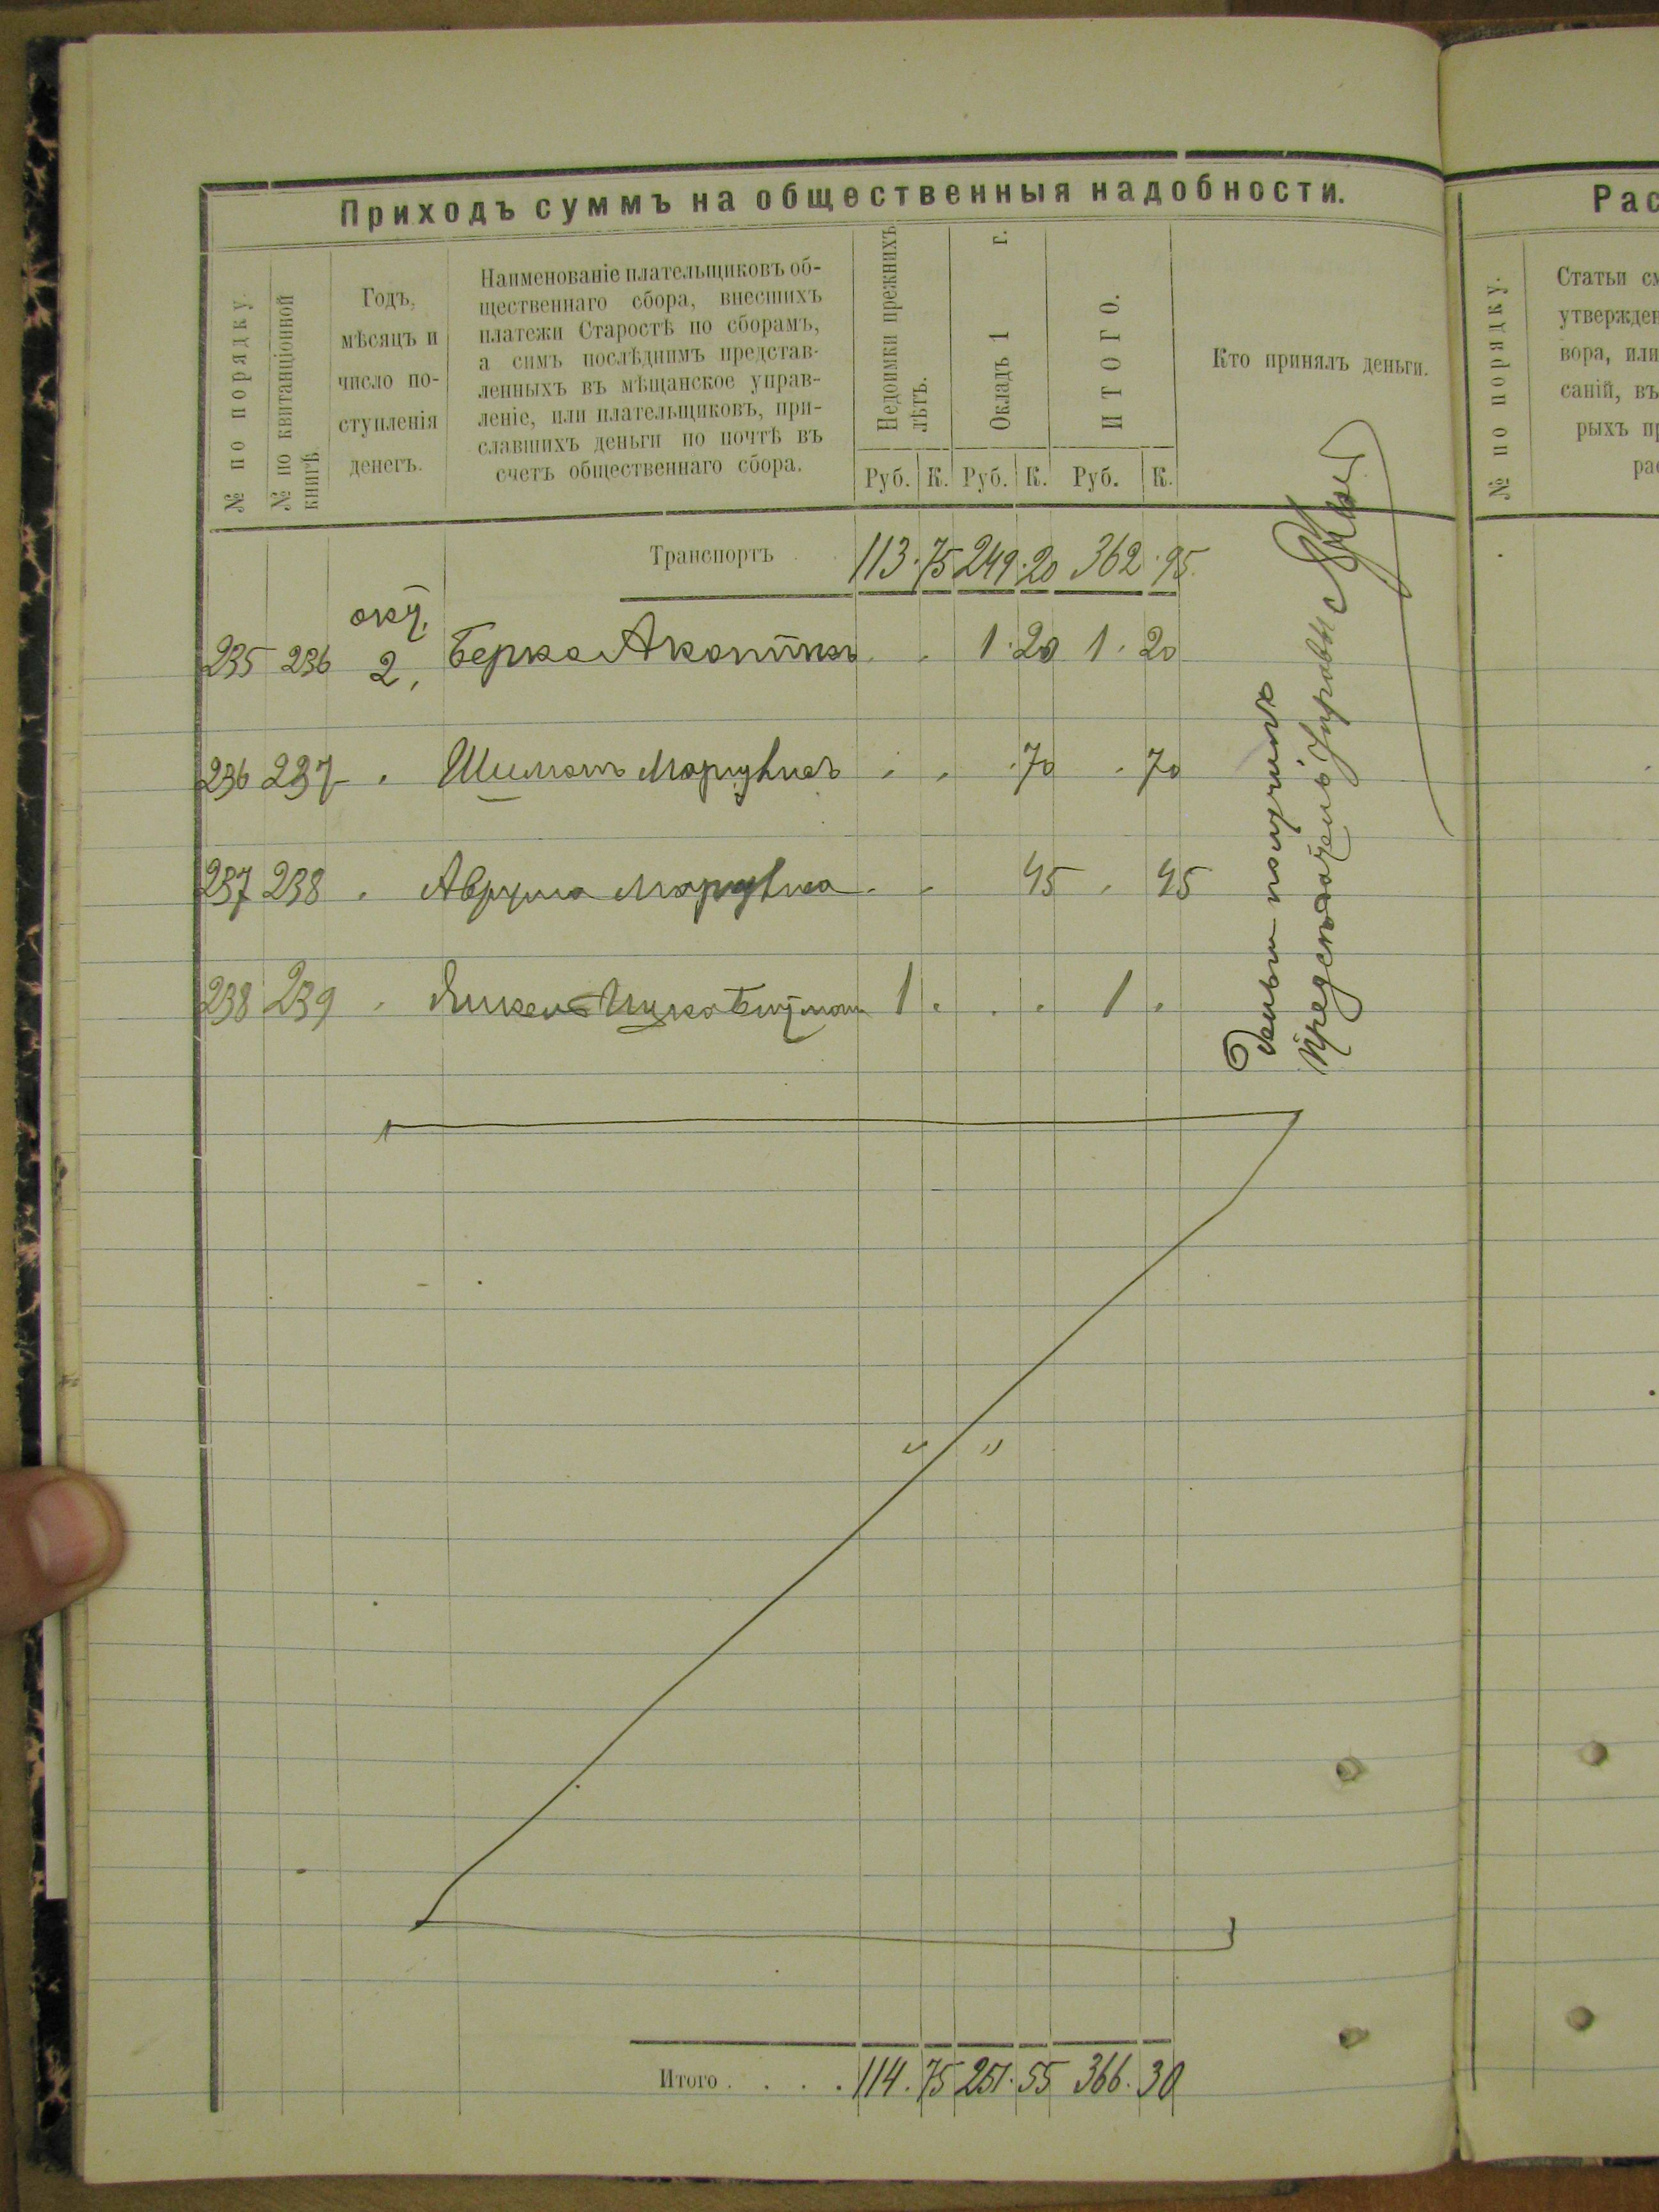 Приходъ суммъ на общественныя надобности.
№ по порядку.
№ по квитанціонной
книгѣ
Годъ,
мѣсяцъ и
число по-
ступленія
денегъ.
Наименованіе плательщиковъ об-
щественнаго сбора, внесшихъ
платежи Старостѣ по сборамъ,
а симъ послѣднимъ представ-
ленныхъ въ мѣщанское управ-
леніе, или плательщиковъ, при-
славшихъ деньги по почтѣ въ
счетъ общественнаго сбора.
Недоимки прежнихъ
лѣтъ.
Окладъ 1 г.
ИТОГО.
Руб. К. Руб. К. Руб. К.
Кто принялъ деньги.
Транспортъ 113 . 75 249 . 20 362 . 95
окт.
235 236 2, Берко . . 1 . 20 1 . 20
236 237 . . . . 70 . 70
237 238 . Аврума . . 45 . 45
238 239 . 1 . . . 1 .
Деньги получилъ
Предсѣдатель Управы
" "
Итого . . . . 114 . 75 251 . 55 366 . 30
Рас
№ по порядку.
Статьи см
утвержден
вора, или
саній, въ
рыхъ пр
рас